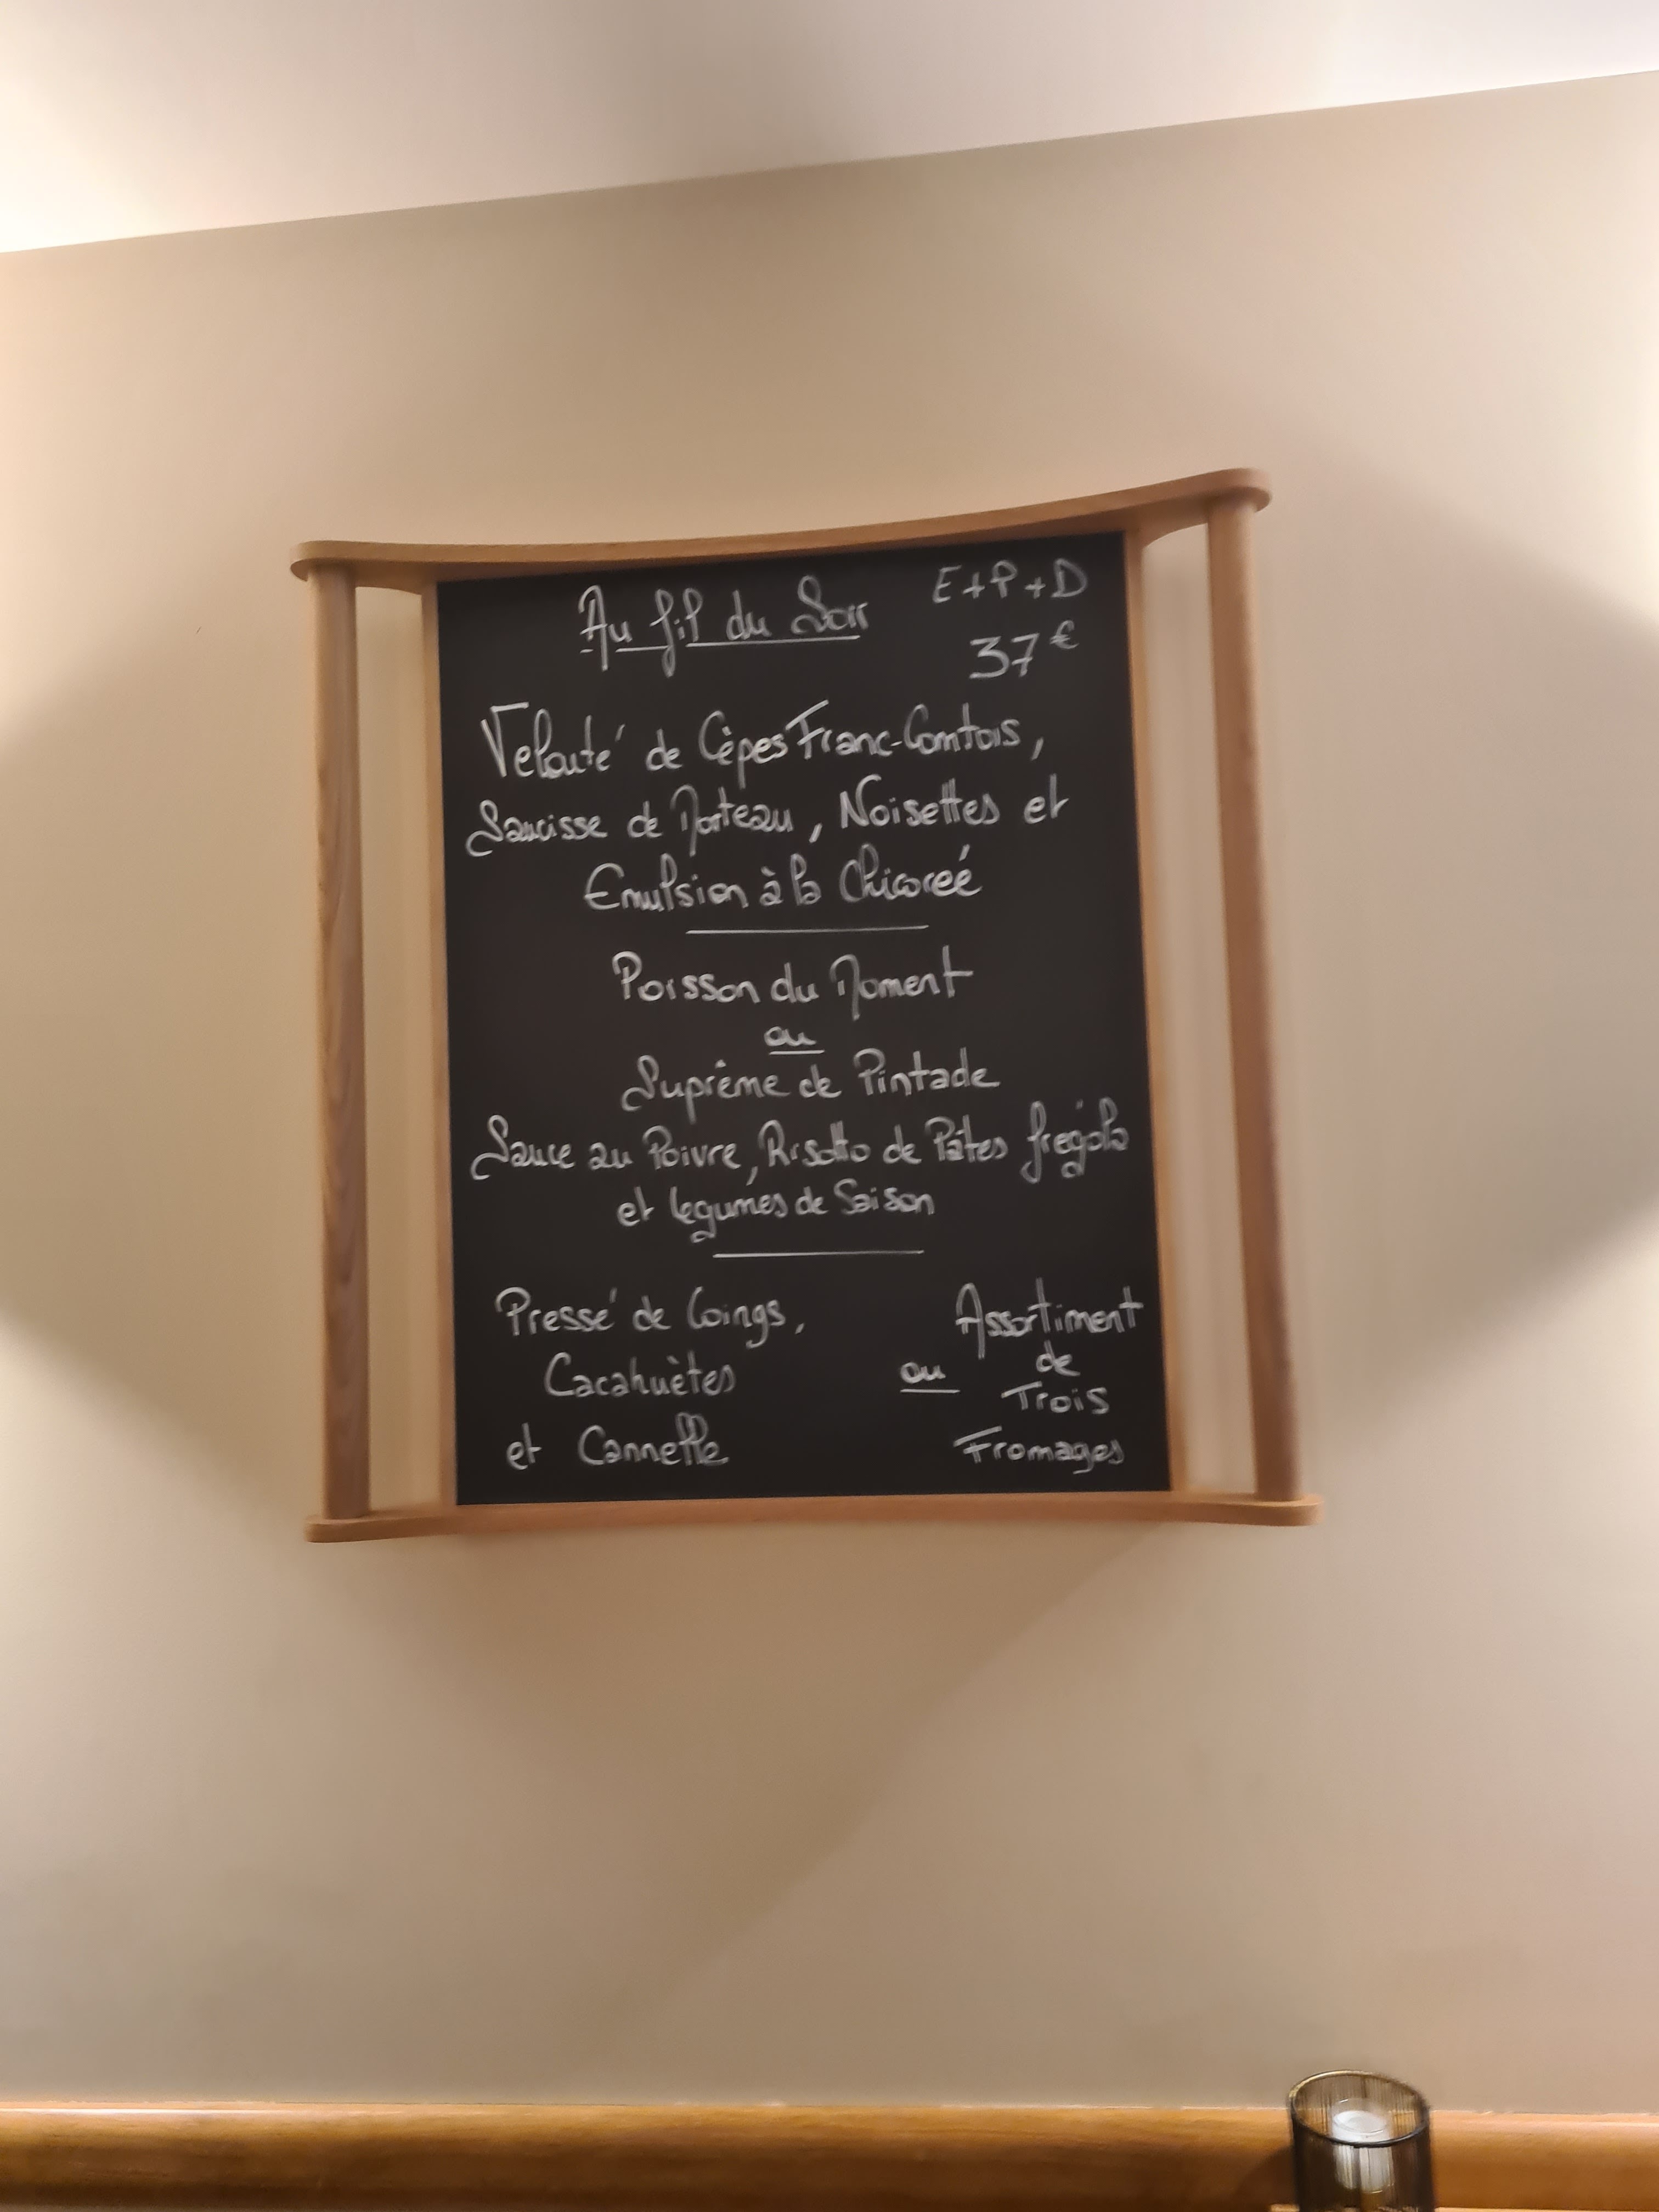 Au fil du Soir
E+P+D
37€
Velouté de Cèpes Franc-Comtois,
Saucisse de Morteau, Noisettes et
Emulsion à la Chicoreé
Poisson du Moment
ou
Suprême de Pintade
Sauce au Poivre, Risotto de Pâtes fregola
et légumes de Saison
Pressé de Coings,
Cacahuètes
et Cannelle
ou
Assortiment
de
Trois
Fromages